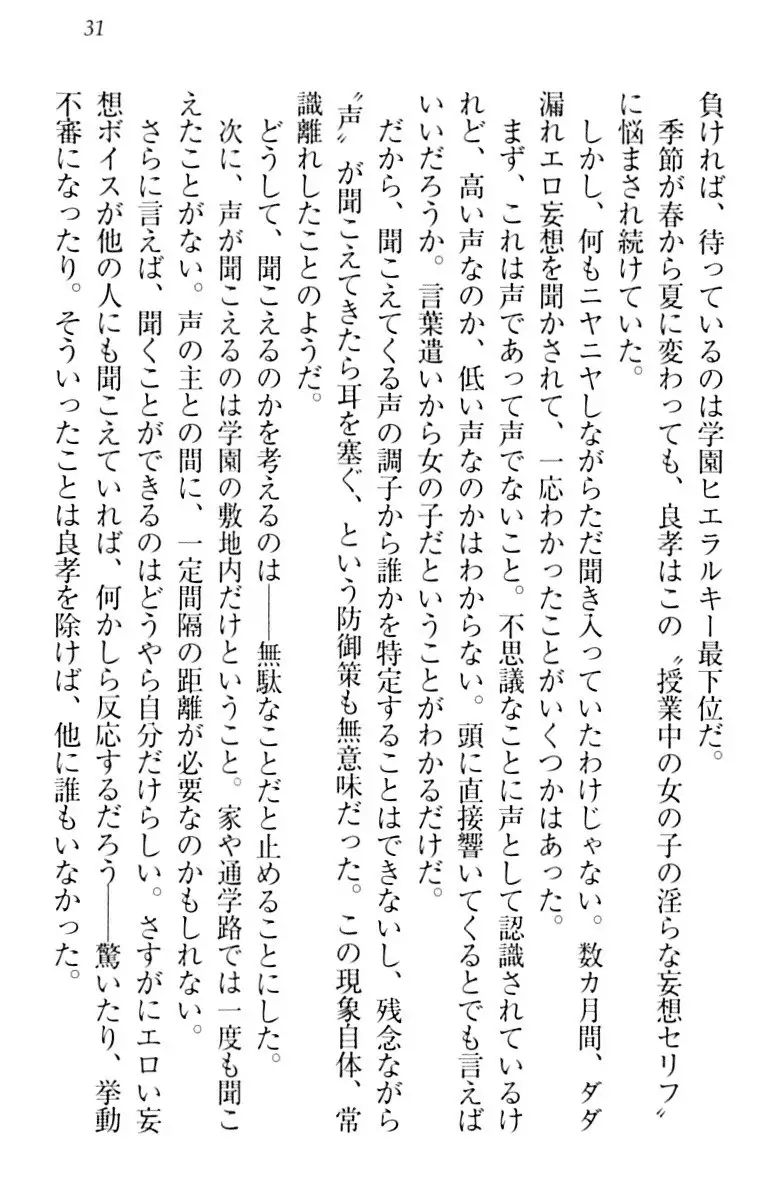 31
負ければ、待っているのは学園ヒエラルキー最下位だ。
季節が春から夏に変わっても、良孝はこの〝授業中の女の子の淫らな妄想セリフ〟
に悩まされ続けていた。
しかし、何もニヤニヤしながらただ聞き入っていたわけじゃない。数カ月間、ダダ
漏れエロ妄想を聞かされて、一応わかったことがいくつかはあった。
まず、これは声であって声でないこと。不思議なことに声として認識されているけ
れど、高い声なのか、低い声なのかはわからない。頭に直接響いてくるとでも言えば
いいだろうか。言葉遣いから女の子だということがわかるだけだ。
だから、聞こえてくる声の調子から誰かを特定することはできないし、残念ながら
〝声〟が聞こえてきたら耳を塞ぐ、という防御策も無意味だった。この現象自体、常
識離れしたことのようだ。
どうして、聞こえるのかを考えるのは――無駄なことだと止めることにした。
次に、声が聞こえるのは学園の敷地内だけということ。家や通学路では一度も聞こ
えたことがない。声の主との間に、一定間隔の距離が必要なのかもしれない。
さらに言えば、聞くことができるのはどうやら自分だけらしい。さすがにエロい妄
想ボイスが他の人にも聞こえていれば、何かしら反応するだろう――驚いたり、挙動
不審になったり。そういったことは良孝を除けば、他に誰もいなかった。